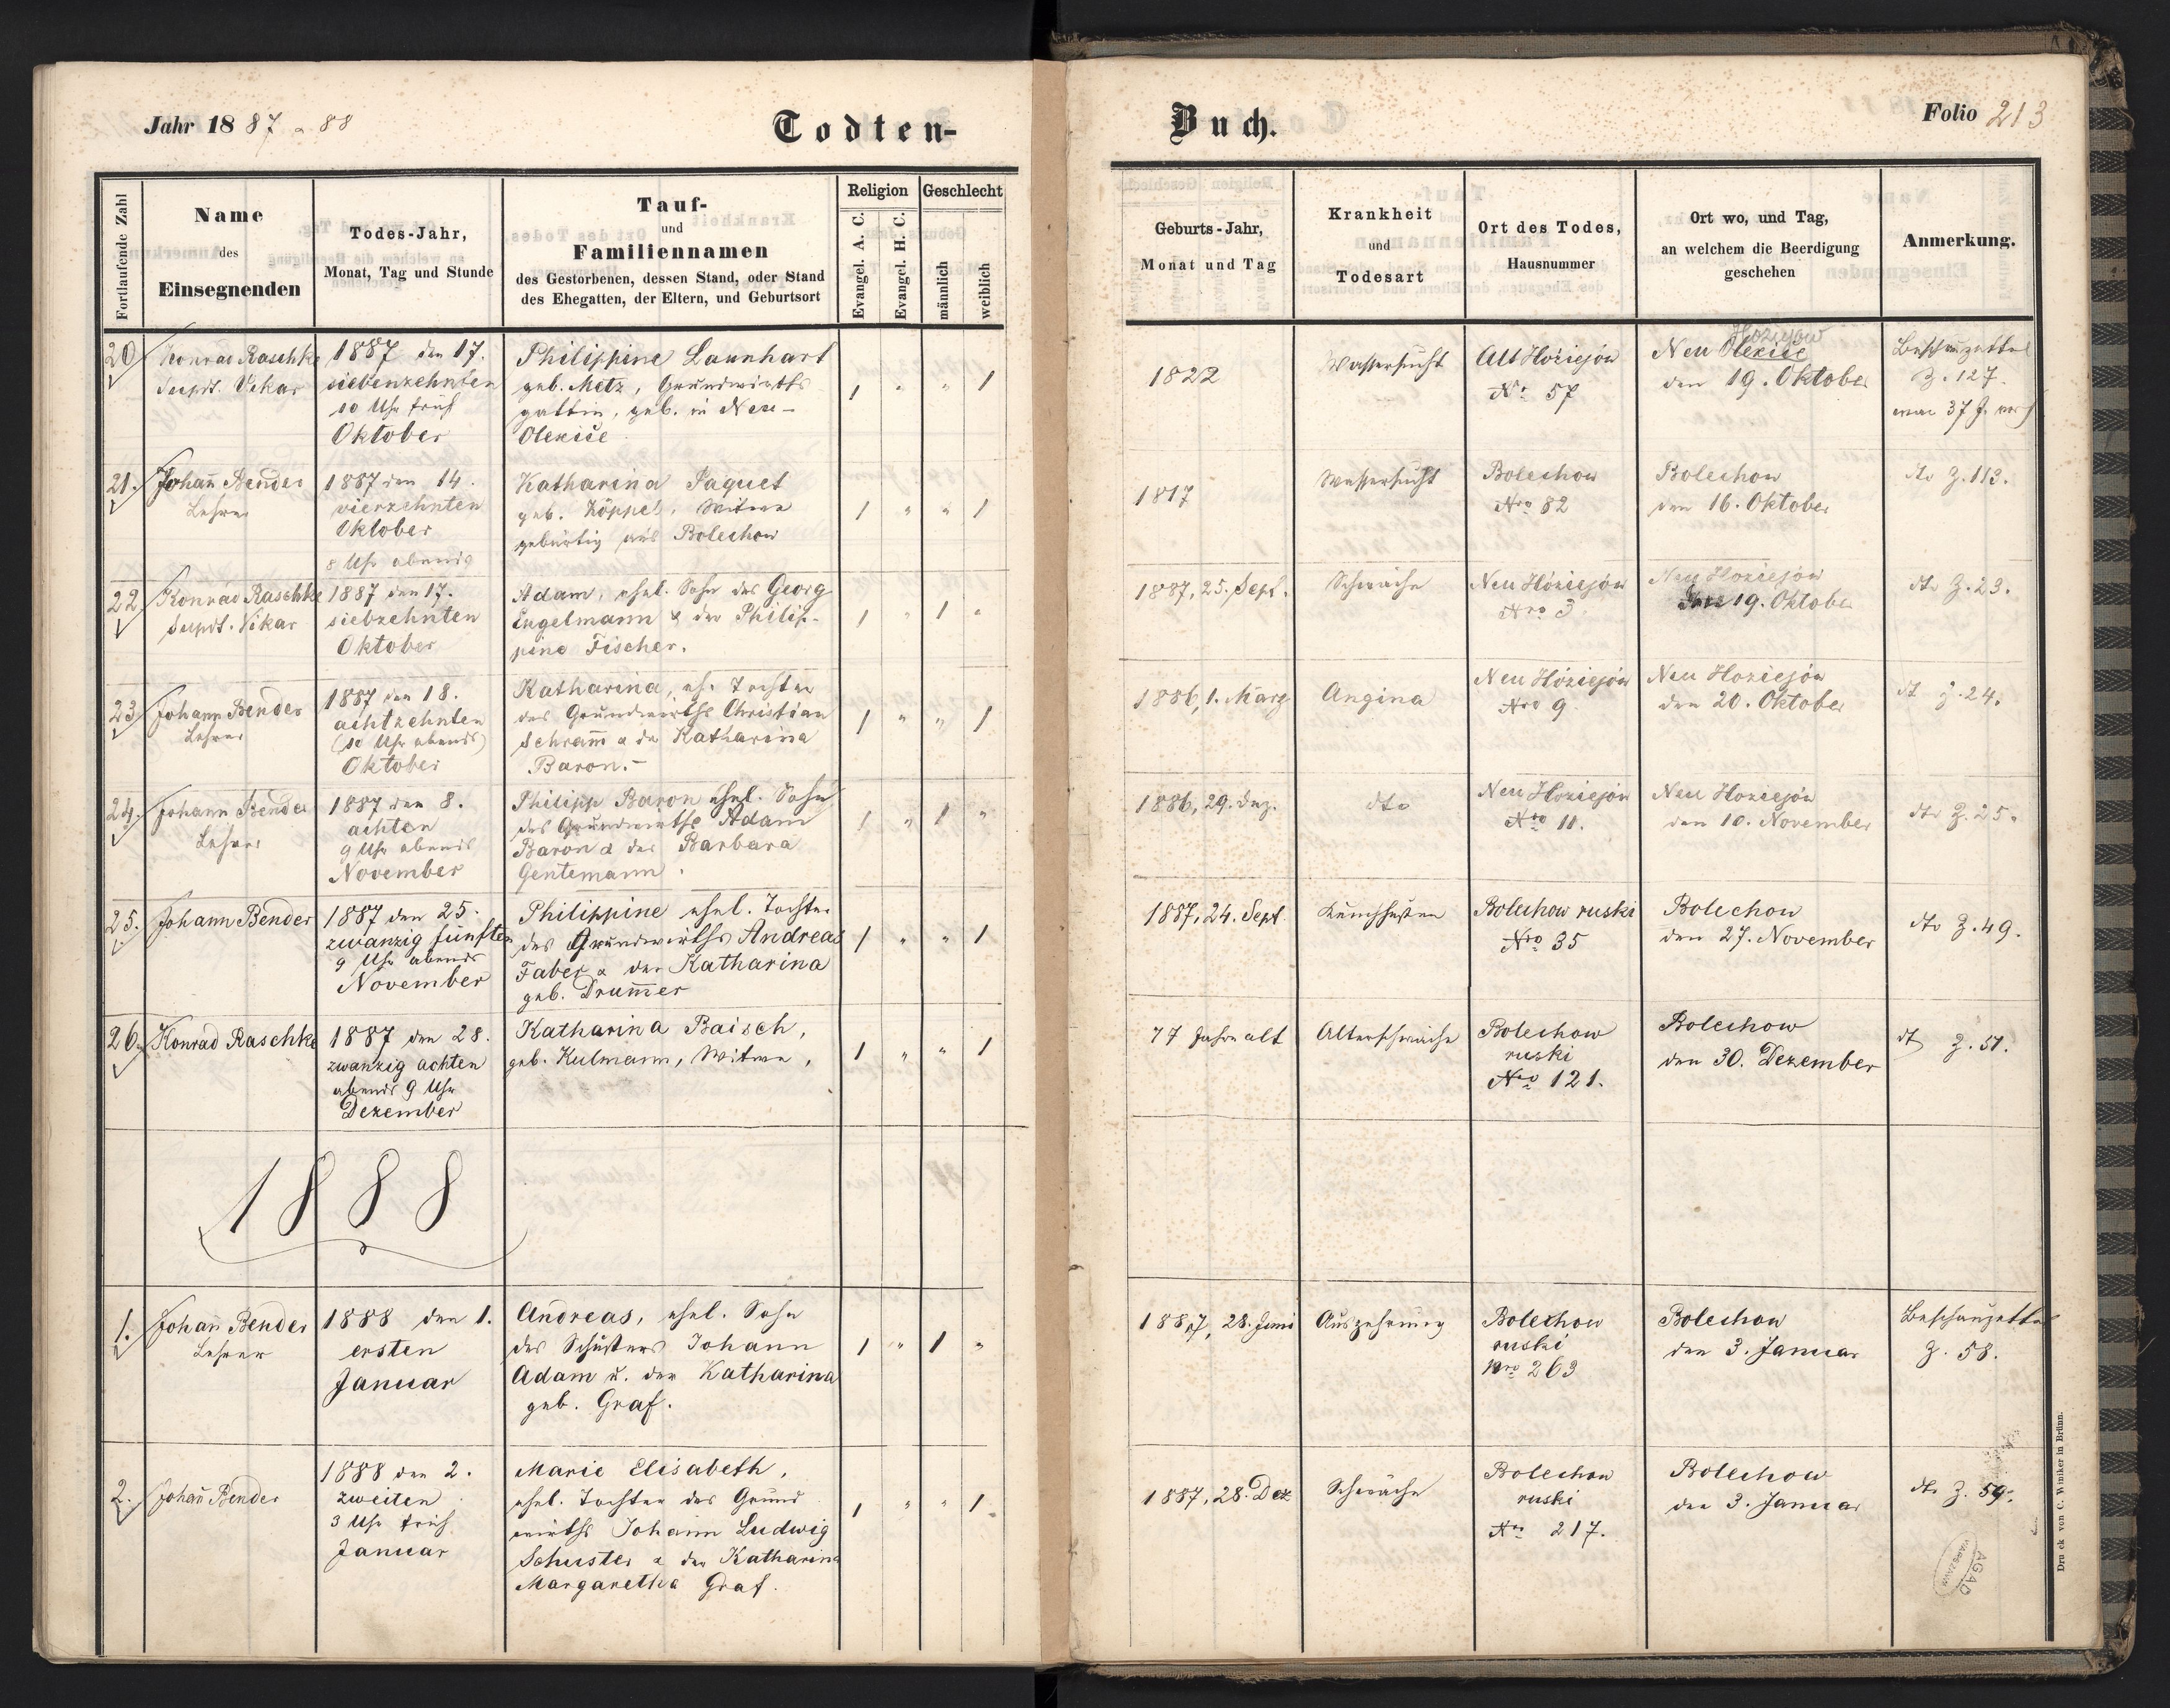 Jahr 1887 & 88
Todten-
Buch.
Folio 213
Fortlaufende Zahl
Name
des
Einsegnenden
Todes-Jahr,
Monat, Tag und Stunde
Tauf-
und
Familiennamen
des Gestorbenen, dessen Stand, oder Stand
des Ehegatten, der Eltern, und Geburtsort
Religion
Evangel. A. C.
Evangel. H. C.
Geschlecht
männlich
weiblich
Geburts-Jahr,
Monat und Tag
Krankheit
und
Todesart
Ort des Todes,
Hausnummer
Ort wo, und Tag,
an welchem die Beerdigung
geschehen
Anmerkung.
20
Konrad Raschke
Supdt. Vikar
1887 den 17.
siebenzehnten
10 Uhr früh
Oktober
Philippine Launhart
geb. Metz, Grundwirths
gattin, geb. in Neu-
Olexice
1 " " 1
1822
Wassersucht
Alt Hoziejów
No 57
Hoziejow
Neu Olexice
den 19. Oktober
Beschauzettel
Z. 127.
21.
Johañ Bender
Lehrer
1887 den 14.
vierzehnten
Oktober
8 Uhr abends
Katharina Paquet
geb. Köppel, Witwe
gebürtig aus Bolechow
1 " " 1
1817
Wassersucht
Bolechow
Nro 82
Bolechow
den 16. Oktober
dto Z. 113.
22
Konrad Raschke
Supdt. Vikar
1887 den 17.
siebzehnten
Oktober
Adam, ehel. Sohn des Georg
Engelmann & der Philip-
pine Fischer.
1 " 1 "
1887, 25. Sept.
Schwäche
Neu Hoziejów
Nro 3
Neu Hoziejów
den 19. Oktober
dto Z. 23.
23
Johann Bender
Lehrer
1887 den 18.
achtzehnten
(10 Uhr abends)
Oktober
Katharina, eh. Tochter
des Grundwirths Christian
Schram̃ & der Katharina
Baron.-
1 " " 1
1886, 1. März
Angina
Neu Hoziejów
Nro 9
Neu Hoziejów
den 20. Oktober
dt Z. 24.
24.
Johann Bender
Lehrer
1887 den 8.
achten
9 Uhr abends
November
Philipp Baron ehel. Sohn
des Grundwirths Adam
Baron & der Barbara
Gentemann.
1 " 1 "
1886, 29. Dez.
dto
Neu Hoziejów
Nro 11.
Neu Hoziejów
den 10. November
dto Z. 25.
25.
Johann Bender
1887 den 25.
zwanzig fünften
9 Uhr abends
November
Philippine ehel. Tochter
des Grundwirths Andreas
Faber & der Katharina
geb. Drum̃er
1 " " 1
1887, 24. Sept.
Keuchhusten
Bolechow ruski
Nro 35
Bolechow
den 27. November
dto Z. 49.
26.
Konrad Raschke
1887 den 28.
zwanzig achten
abends 9 Uhr
Dezember
Katharina Baisch,
geb. Kulmann, Witwe,
1 " " 1
77 Jahre alt
Altersschwäche
Bolechow
ruski
Nro 121.
Bolechow
den 30. Dezember
dt Z. 51.
1888
1.
Johañ Bender
Lehrer
1888 den 1.
ersten
Januar
Andreas, ehel. Sohn
des Schusters Johann
Adam u. der Katharina
geb. Graf.
1 " 1 "
1887, 28. Juni
Auszehrung
Bolechow
ruski
Nro 263
Bolechow
den 3. Januar
Beschauzettel
Z. 58.
2.
Johañ Bender
1888 den 2.
zweiten
3 Uhr früh
Januar
Marie Elisabeth,
ehel. Tochter des Grund
wirths Johann Ludwig
Schuster & der Katharina
Margaretha Graf.
1 " " 1
1887, 28. Dez
Schwäche
Bolechow
ruski
No 217.
Bolechow
den 3. Januar
dto Z. 59.
AGAD
WARSZAWA
Druck von C. Winiker in Brünn.